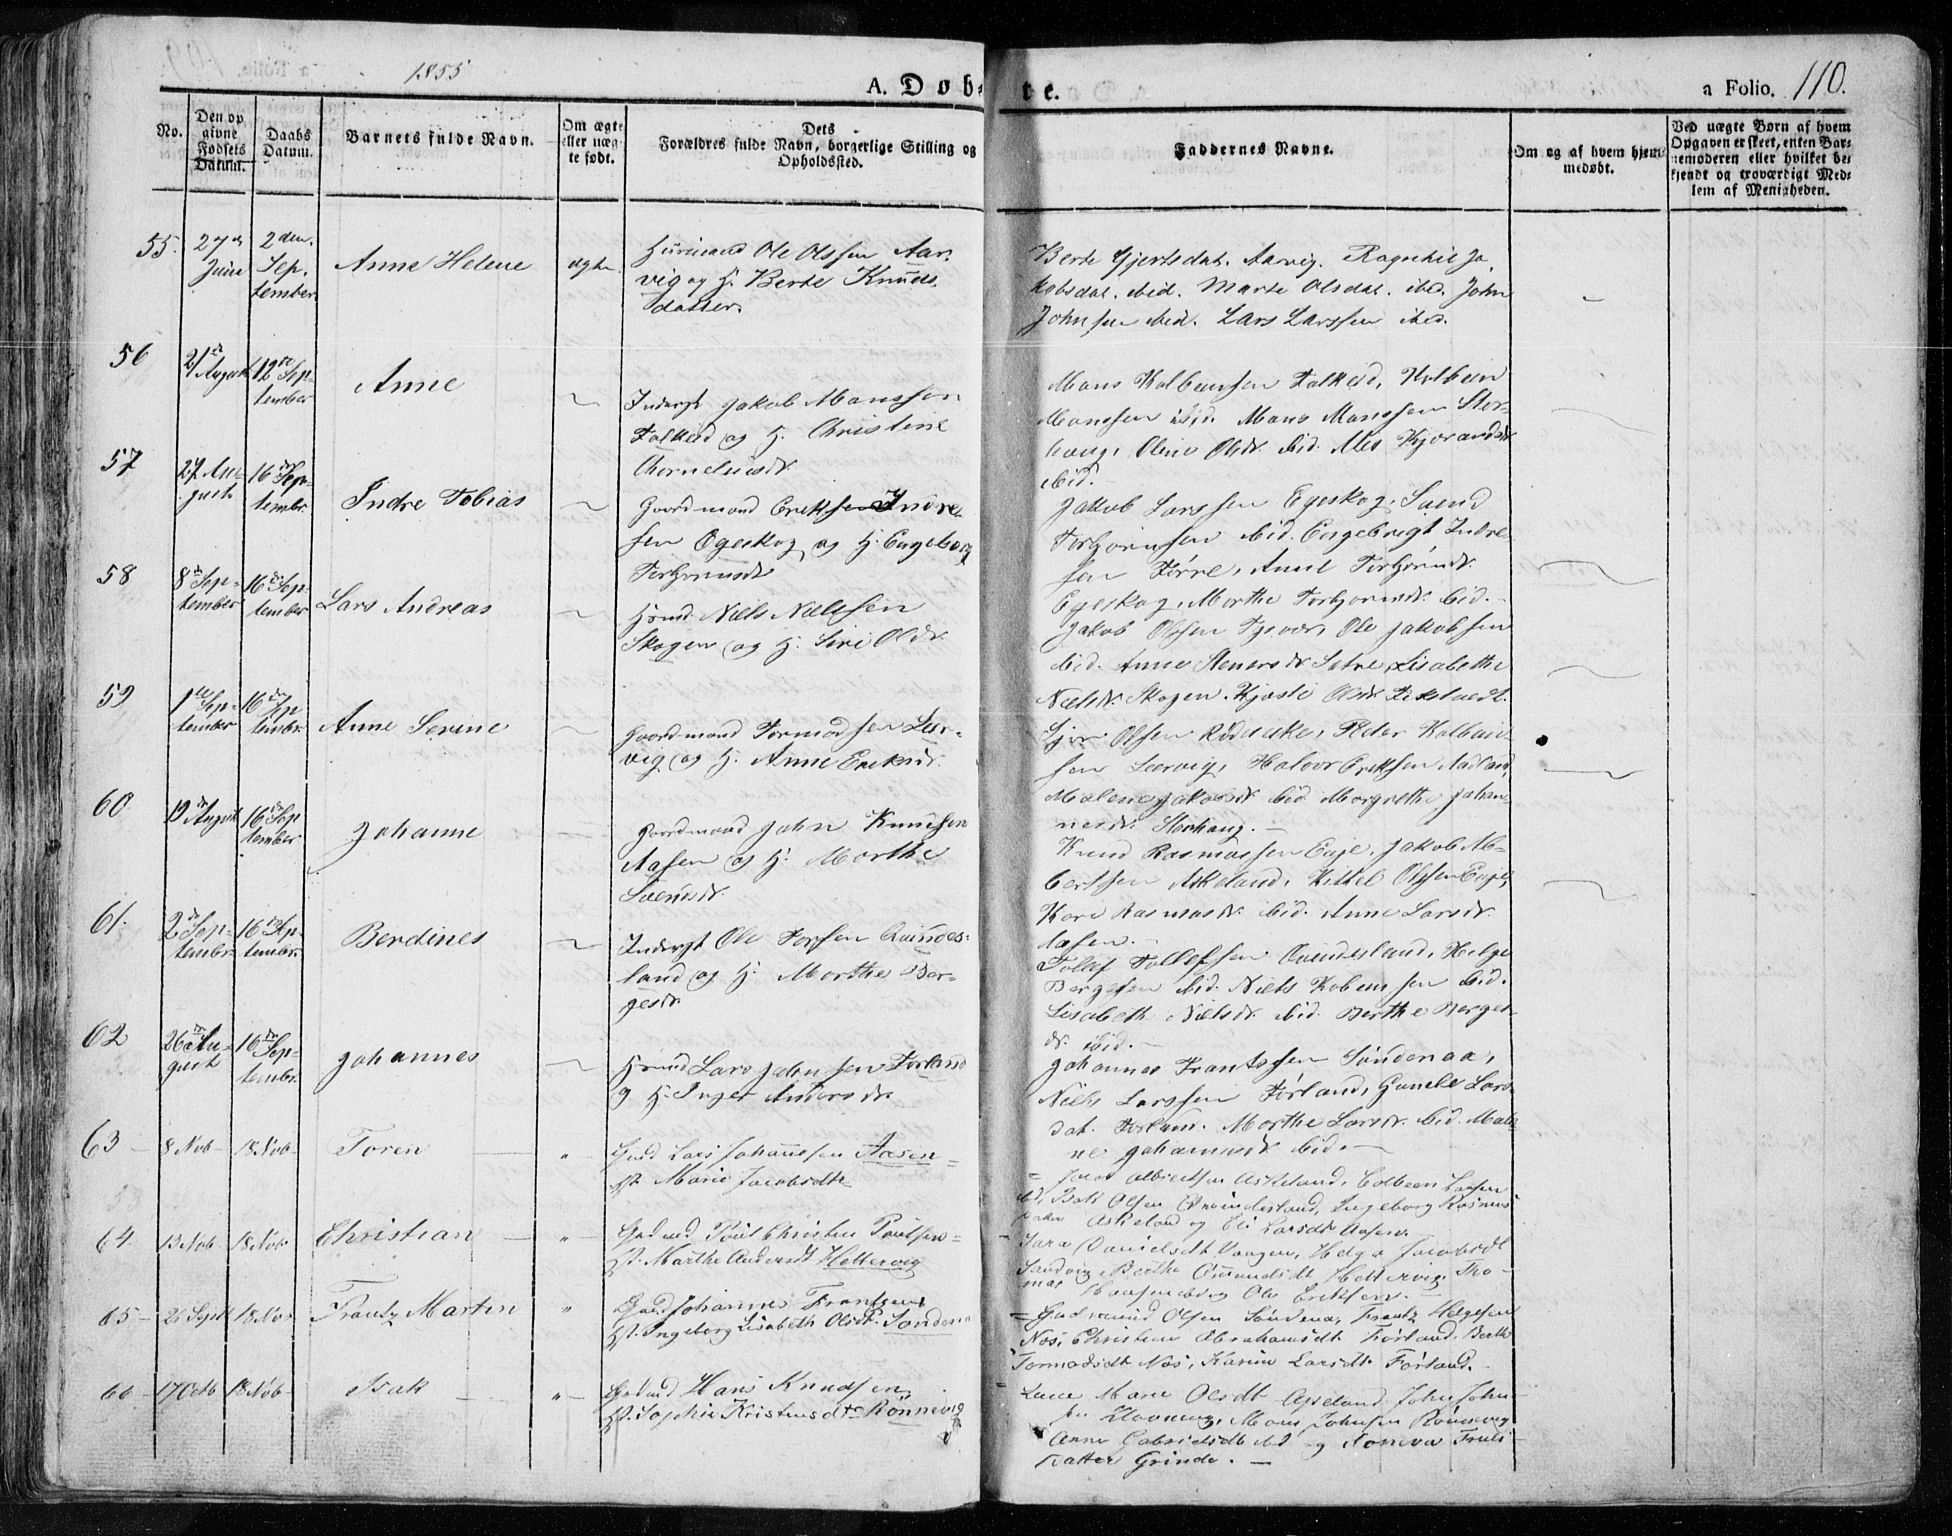 1855
A. Døb-
te.
a Folio. 110.
No.
Den op
givne
Fødsels
Datum.
Daabs
Datum.
Barnets fulde Navn.
Om ægte
eller uæg
te født.
Dets
Forældres fulde Navn, borgerlige Stilling og
Opholdssted.
Faddernes Navne.
Om og af hvem hjem
medøbt.
Ved uægte Børn af hvem
Opgaven er skeet, enten Bar-
nemoderen eller hvilket be-
kjendt og troværdigt Med-
lem af Menigheden.
55.
27de
Juni
2den
Sep.
tember
Anne Helene
ægte
Huusmand Ole Olssen Aar.
vig og H. Berte Knuds.
datter.
Berte Gjertsdat. Aarvig. Ragnhil Ja
kobsdat. ibid. Marte Olsdat. ibid. John
Johnsen ibid. Lars Larssen ibid.
56
21de August
12te Sep-
tember
Anne
Inderst Jakob Monssen
Falkeid og H. Christine
Chorneliusdr.
Mons Kolbensen Falkeid, Kolbein
Monssen ibid. Mons Monssen Stor-
haug, Oline Olsdr. ibid. Alis Kjorandsdr
ibid.
57
27 Au-
gust
16de Sep-
tembr.
Indre Tobias
Gaardmand Eriksen Indre-
sen Egeskog og H. Engeborg
Torbjørnsdr
Jakob Larssen Egeskog, Svend
Torbjørnsen ibid. Engebregt Indre
sen Førre, Anne Torbjørnsdr.
Egeskog, Morthe Torbjørnsdr. ibid.
58
8de Sep-
tember
16de Sep-
tember
Lars Andreas
Hsmd. Niels Nielssen
Skogen og H. Siri Olsdr.
Jakob Olssen Tysvær, Ole Jakobsen
ibid. Anne Stenersdr Setre, Lisabethe
Nielsdr. Skogen. Kjersti Olsdr.
59
1ste Sep-
tember
16de Sep
tembr.
Anne Serine
Gaardmand Tormodsen Leer-
vig og H. Anne Eriksdr.
Olsen Rødsake, Peder Kolbein
sen Leervig, Halvor Eriksen Aadland,
Malene Jakobsdr ibid. Morgrethe Johan-
nesdr. Storhaug.
60
19de August
16de Sep
tember
Johanne
Gaardmand John Knudsen
Aasen og H. Morthe
Svendsdr.
Knud Rasmussen Eige, Jakob Al-
bertsen Askeland, Kittel Olssen Eige,
Kari Rasmusdr. ibid. Anne Larsdr.
Aasen.
61.
2de Sep-
tembr.
16de Sep-
tembr.
Berdines
Inderst Ole Torsen Qvindes-
land og H. Morthe Ber-
gesdr.
Tollef Tollefssen Qvindesland, Helge
Bergesen ibid. Niels Kobensen ibid.
Lisabeth Nielsdr. ibid. Berthe Berges-
dr. ibid.
62
26de Au-
gust
16de Sep-
tembr.
Johannes
Hsmnd Lars Johnsen Førland
og H. Inger Andersdr.
Johannes Frantssen Søndenaa,
Niels Larssen Førland, Gunele Lars-
dat. Førland. Morthe Larsdr. ibid. Male-
ne Johannesdr ibid.
63
8 Nob-
18 Nob-
Toren
Gmd Lars Johannesen Aasen
Hst. Marie Jacobsdtr
Albrectsen Askeland, Colbeen Larsen
ibid, Olsen Qvindesland, Ingeborg Rasmus
datter Askeland og Eli Larsdtr Aasen.
64.
13 Nob-
18 Nob-
Christian
Gaardmd Poul Christen Poulsen
Hst. Marthe Andersdt Hettervig
Sara Danielsdt Vaagen, Helga Jacobsdt
Sandvig, Berthe Amundsdt Hettervig. Tho-
mas og Ole Eriksen.
65
25 Sept
18 Nov
Frantz Martin
Gmd Johannes Frantzen
Hst. Ingeborg Lisabeth Olsdt. Søndena
Gudmund Olsen Søndena, Frantz Helgesen
Nos, Christine Abrahamsdt Førland, Berthe
Tormodsdt Nos, Karine Larsdt Førland.
66
17 Octb
18 Nob-
Isak
Gaardmd Hans Knudsen
Hst. Sophie Kristensdtr Rønnevig
Marie Olsdt Apeland, John John
sen, Mons Johnsen Rønnevig
Anne Gabrielsdt ibid og Truls
datter Grinde.